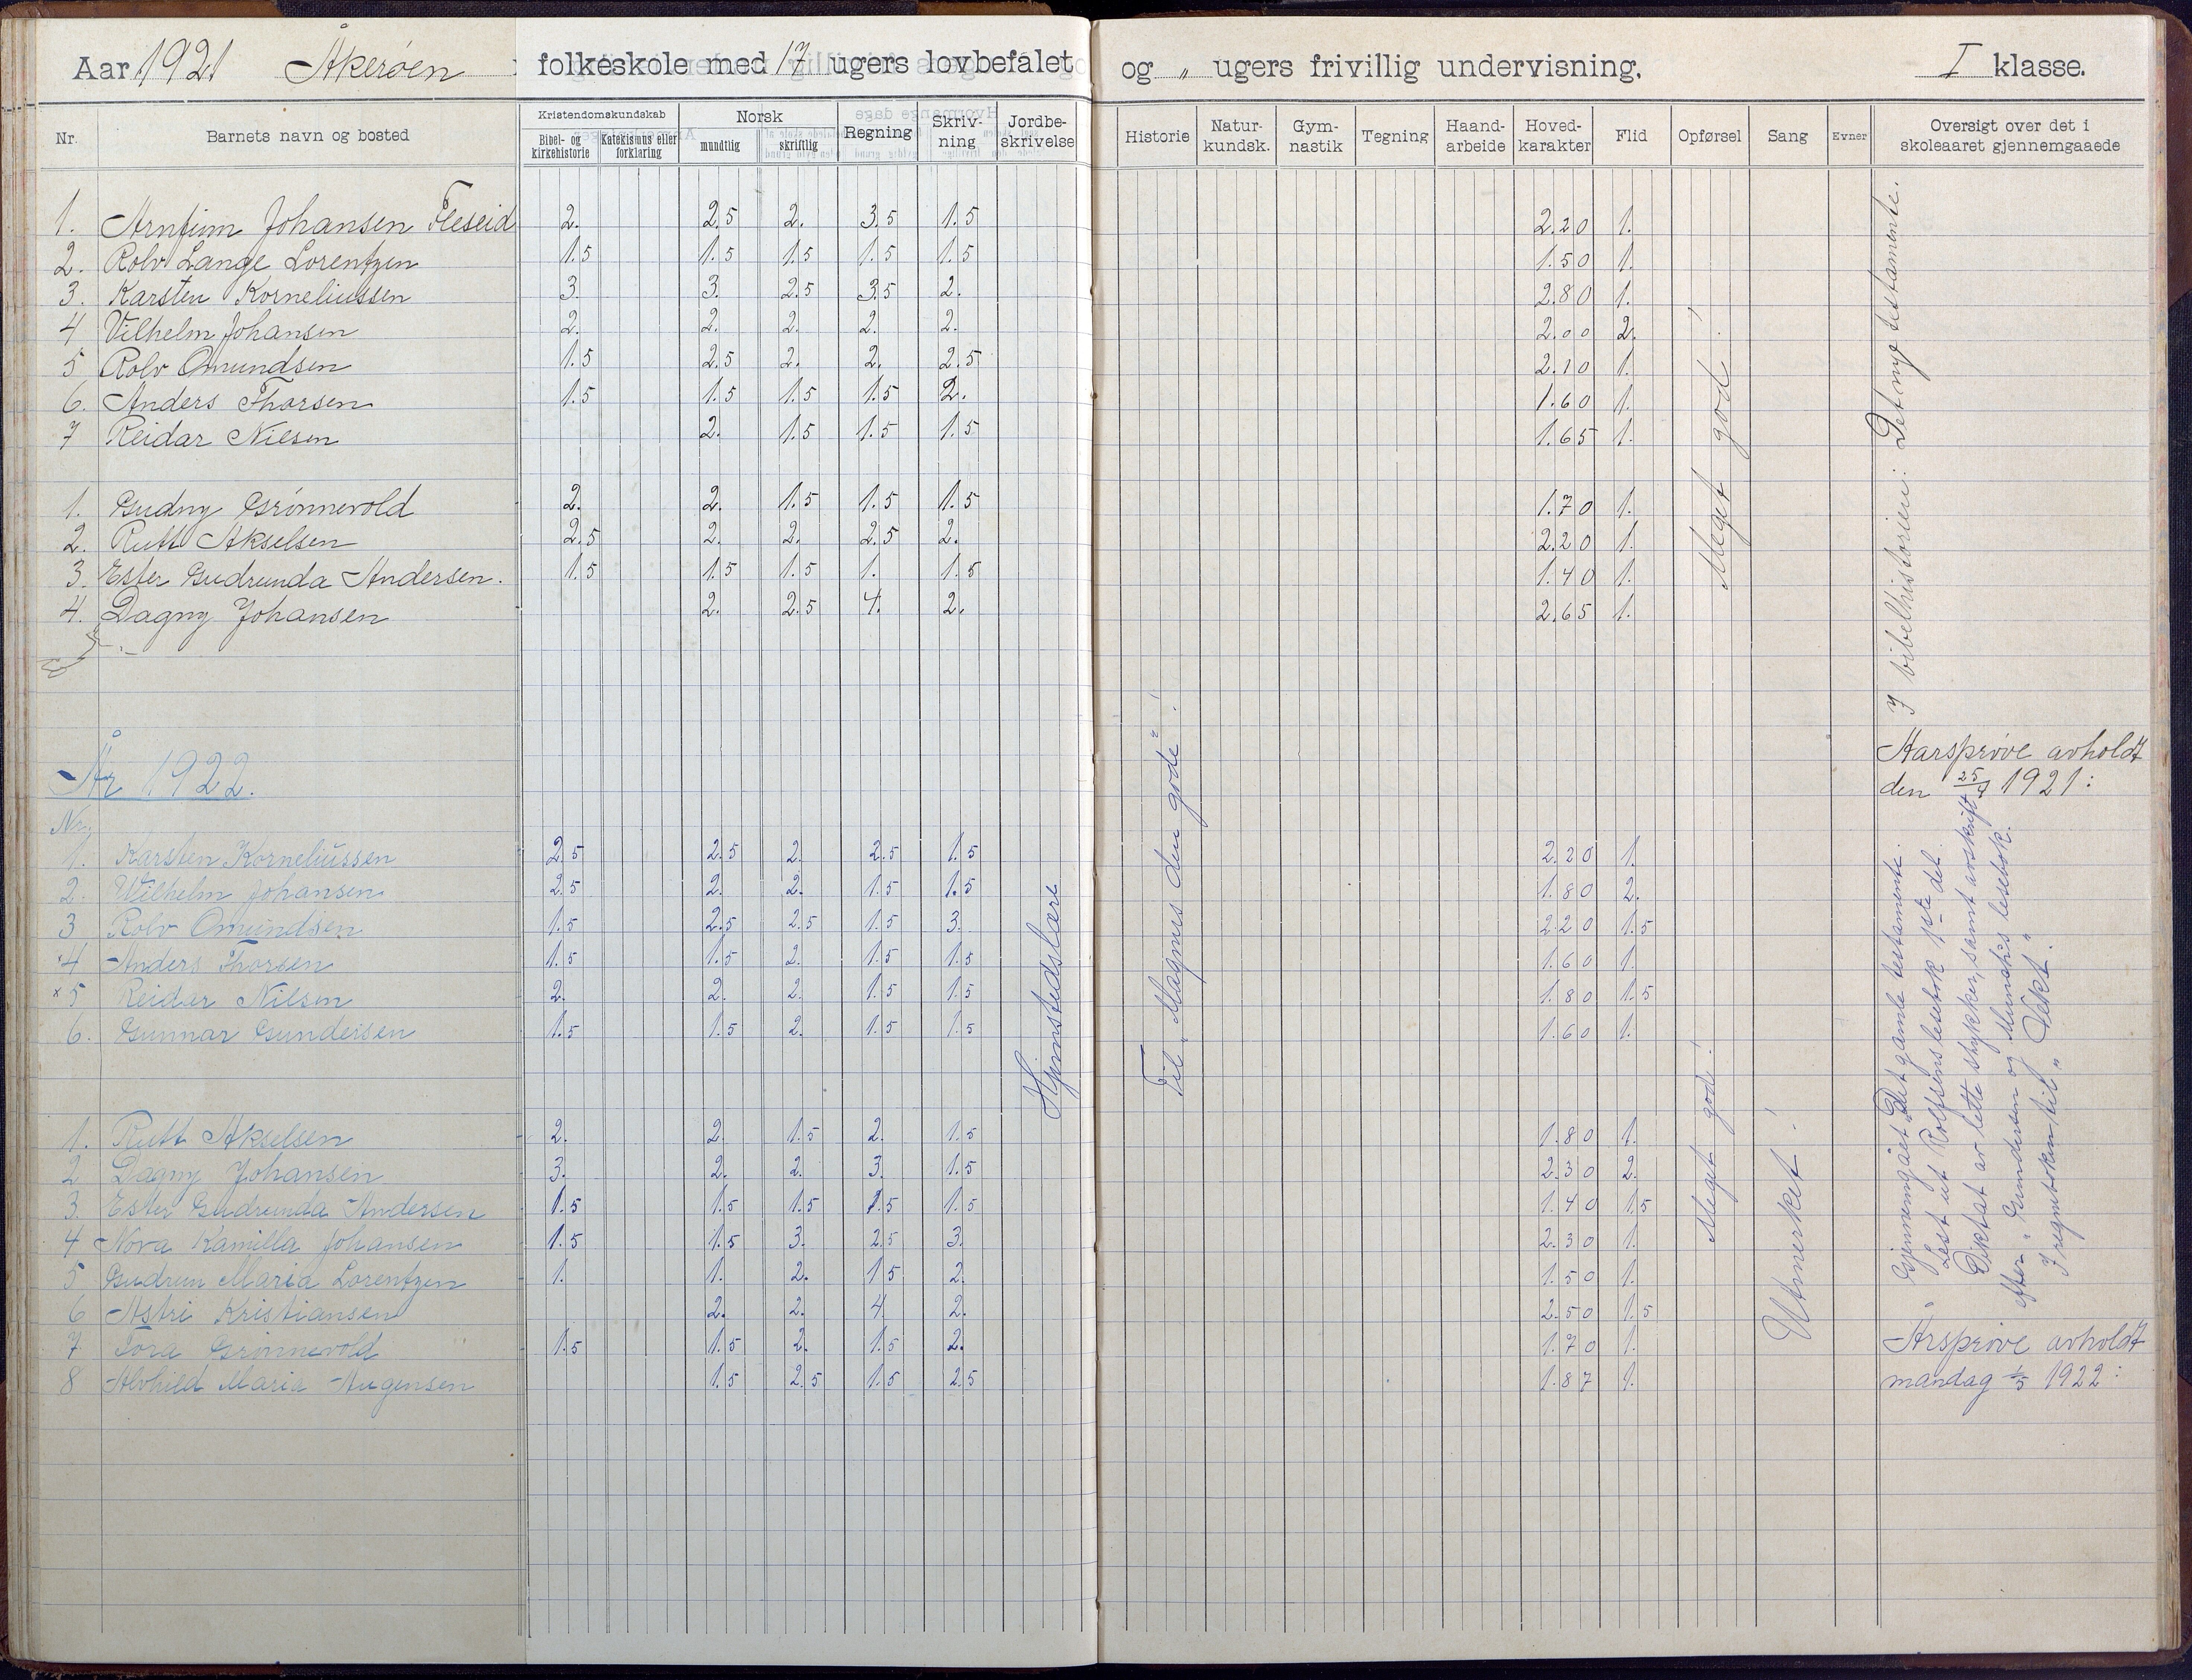 Aar 1921 Åkerøen folkeskole med 17 ugers lovbefalet og " ugers frivillig undervisning. I klasse.
Nr. Barnets navn og bosted Kristendomskundskab Bibel- og kirkehistorie Katekismus eller forklaring Norsk mundtlig skriftlig Regning Skriv-ning Jordbe-skrivelse Historie Natur-kundsk. Gym-nastik Tegning Haand-arbeide Hoved-karakter Flid Opførsel Sang Evner Oversigt over det i skoleaaret gjennemgaaede
1. Arnfinn Johansen Fleseid 2. 2.5 2. 3.5 1.5 2.20 1.
2. Rolv Lange Lorentzen 1.5 1.5 1.5 1.5 1.5 1.50 1.
3. Karsten Korneliussen 3. 3. 2.5 3.5 2. 2.80 1.
4 Vilhelm Johansen 2. 2. 2. 2. 2. 2.00 2.
5 Rolv Omundsen 1.5 2.5 2. 2. 2.5 2.10 1.
6. Anders Thorsen 1.5 1.5 1.5 1.5 2. 1.60 1.
7 Reidar Nilsen 2. 1.5 1.5 1.5 1.65 1.
1. Gudny Grønnevold 2. 2. 1.5 1.5 1.5 1.70 1.
2. Rutt Akselsen 2.5 2. 2. 2.5 2. 2.20 1.
3. Ester Gudrunda Andersen. 1.5 1.5 1.5 1. 1.5 1.40 1.
4. Dagny Johansen 2. 2.5 4. 2. 2.65 1.
Meget god!
I bibelhistorien: Det nye testamente.
Aarsprøve avholdt
den 25/4 1921:
År 1922.
Nr.
1. Karsten Korneliussen 2.5 2.5 2. 2.5 1.5 2.20 1.
2. Wilhelm Johansen 2.5 2. 2. 1.5 1.5 1.80 2.
3 Rolv Omundsen 1.5 2.5 2.5 1.5 3. 2.20 1.5
4 Anders Thorsen 1.5 1.5 2. 1.5 1.5 1.60 1.
x 5 Reidar Nilsen 2. 2. 2. 1.5 1.5 1.80 1.5
6. Gunnar Gundersen 1.5 1.5 2. 1.5 1.5 1.60 1.
1. Rutt Akselsen 2. 2. 1.5 2. 1.5 1.80 1.
2 Dagny Johansen 3. 2. 2. 3. 1.5 2.30 2.
3. Ester Gudrunda Andersen 1.5 1.5 1.5 1.5 1.5 1.40 1.5
4 Nora Kamilla Johansen 1.5 1.5 3. 2.5 3. 2.30 1.
5 Gudrun Maria Lorentzen 1. 1. 2. 1.5 2. 1.50 1.
6 Astri Kristiansen 2. 2. 4 2. 2.50 1.5
7 Tora Grønnevold 1.5 1.5 2. 1.5 2. 1.70 1.
8 Alvhild Maria Augensen 1.5 2.5 1.5 2.5 1.87 1.
Hjemstedslære
Til "Magnus den gode"!
Meget god!
Utmerket!
Gjennemgået Det gamle testamente.
Lest ut Rolfsens lesebok 1ste del.
Diktat av lette stykker, samt avskrift
efter "Gundersen og Munch's lesebok.
I regneboken til "Vekt."
Årsprøve avholdt
mandag 1/5 1922: